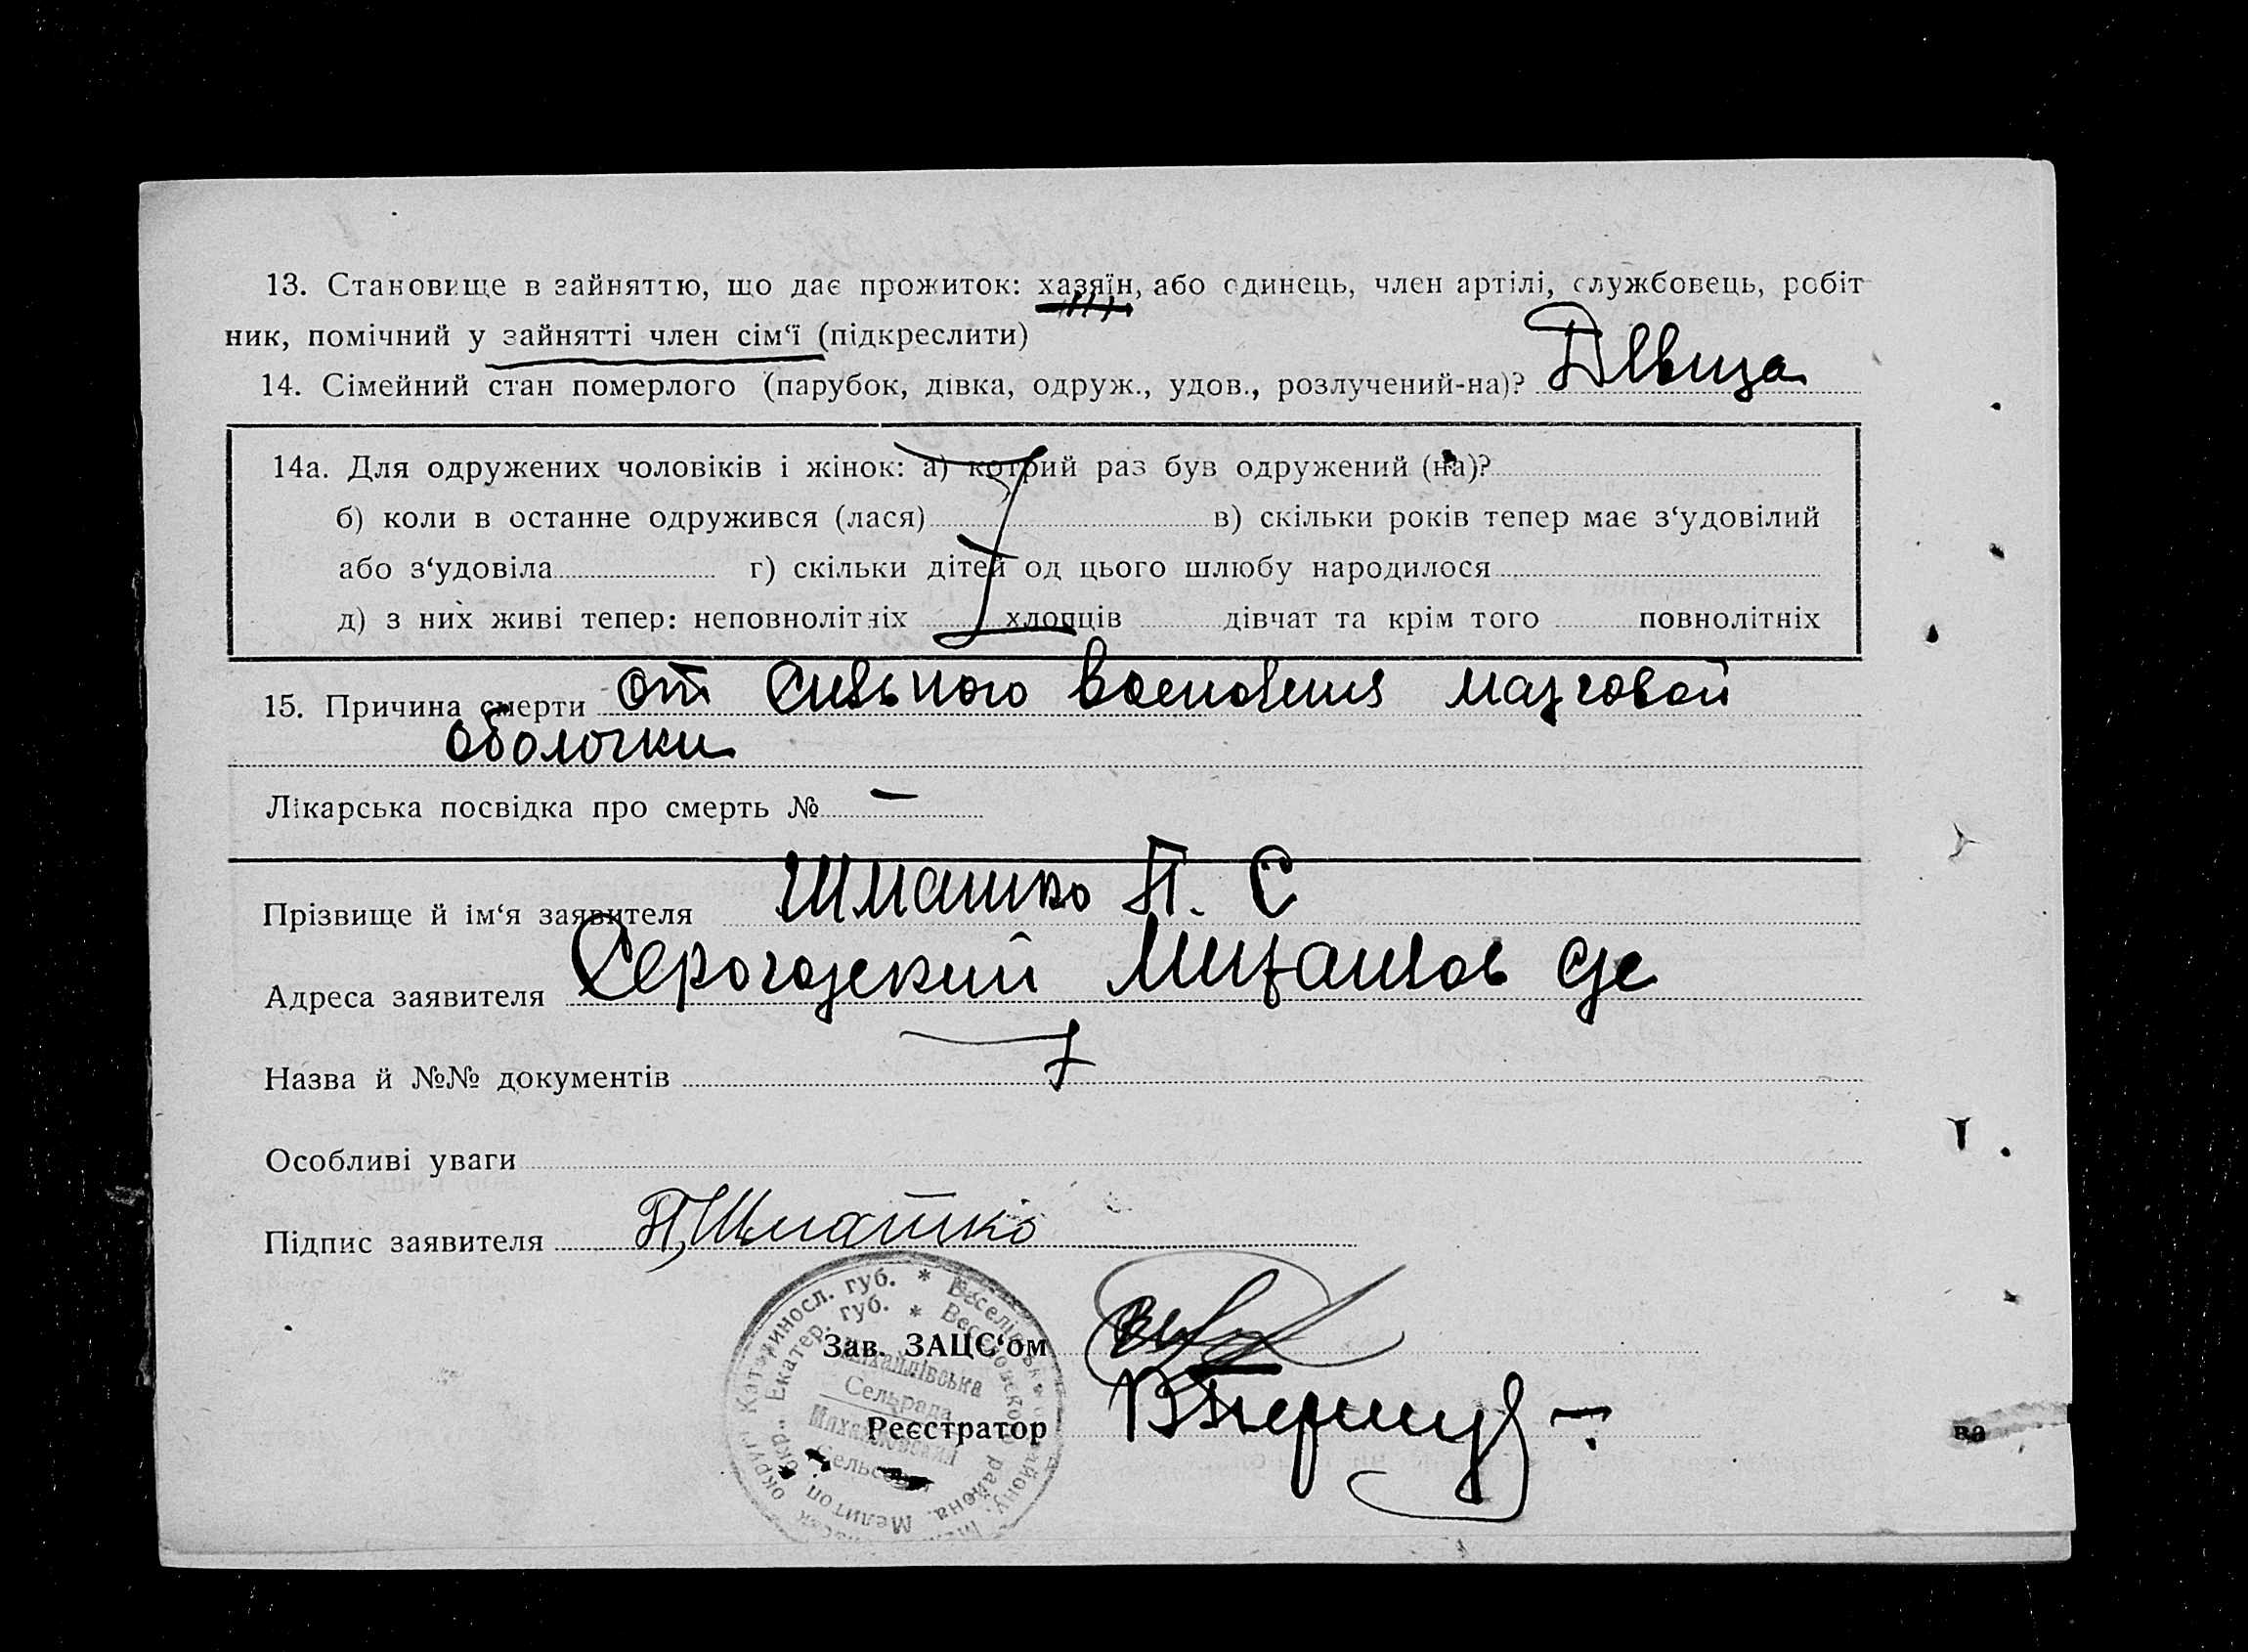 13. Становище в зайняттю, що дає прожиток: хазяїн, або одинець, член артілі, службовець, робіт
ник, помічний у зайнятті член сім‘ї (підкреслити)
14. Сімейний стан померлого (парубок, дівка, одруж., удов., розлучений-на)? Дѣвица
14а. Для одружених чоловіків і жінок: а) котрий раз був одружений (на)?
б) коли в останне одружився (лася) в) скільки років тепер має з‘удовілий
або з‘удовіла г) скільки дітей од цього шлюбу народилося
д) з них живі тепер: неповнолітніх хлопців дівчат та крім того повнолітніх
15. Причина смерти от сильного мазговой
оболочки
Лікарська посвідка про смерть № —
Прізвище й ім‘я заявителя Шматко П. С
Адреса заявителя Серогозский
Назва й №№ документів
Особливі уваги
Підпис заявителя П,Шматко
Катериносл. губ. * Веселівськ району
Екатер. губ. * Веселовского района. Мелитоп. окр.
Михайлівська
Сельрада
Михайловский
Сельсовет
Зав. ЗАЦС‘ом
Реєстратор
ва